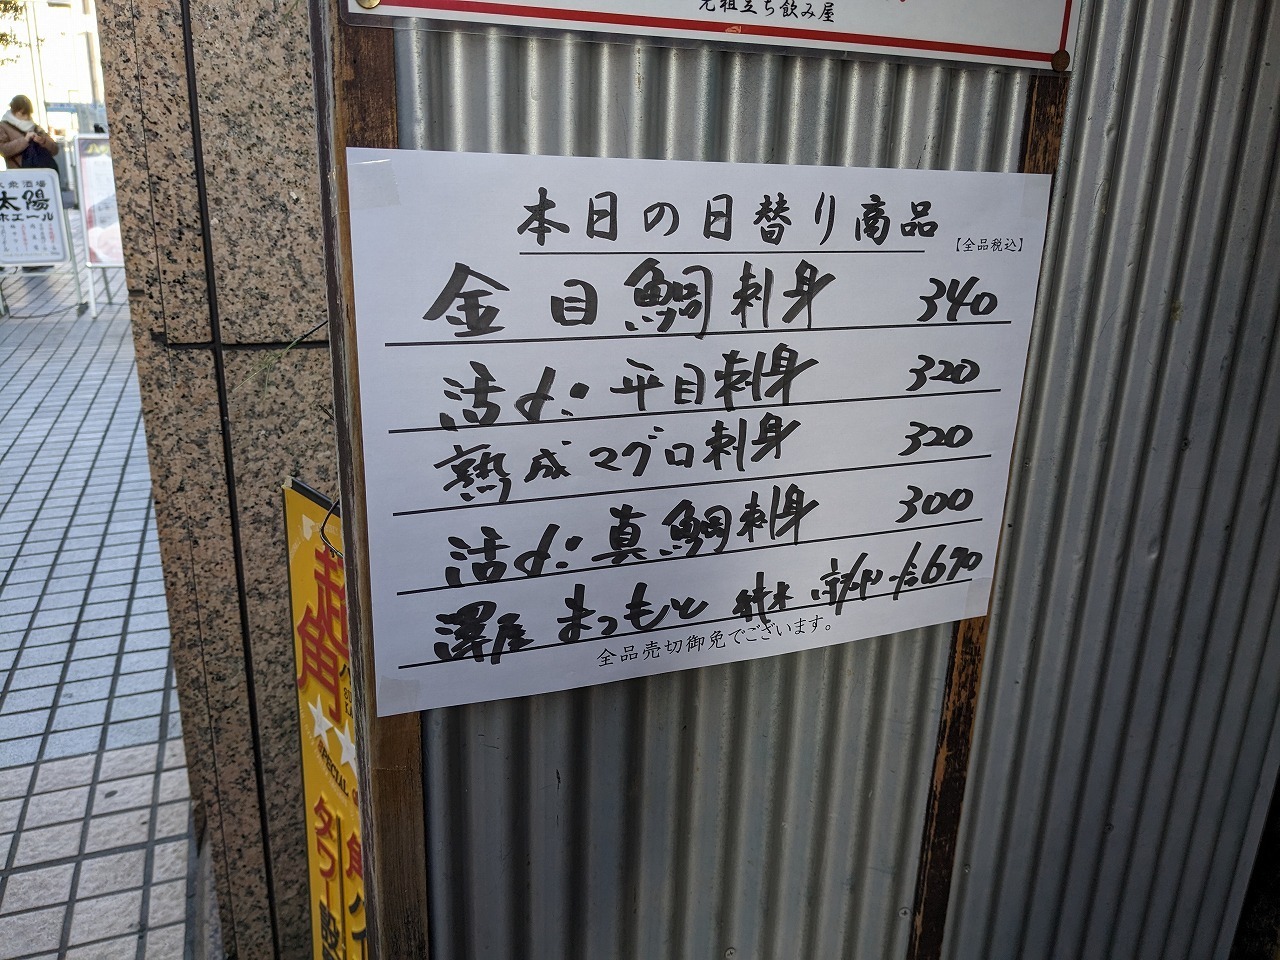 元祖立ち飲み屋
本日の日替り商品
【全品税込】
金目鯛刺身 340
活〆平目刺身 320
熟成マグロ刺身 320
活〆真鯛刺身 300
澤屋まつもと 690
全品売切御免でございます。
大衆酒場
太陽
ホエール
超
角
SPECIAL
タワー
角ハイ